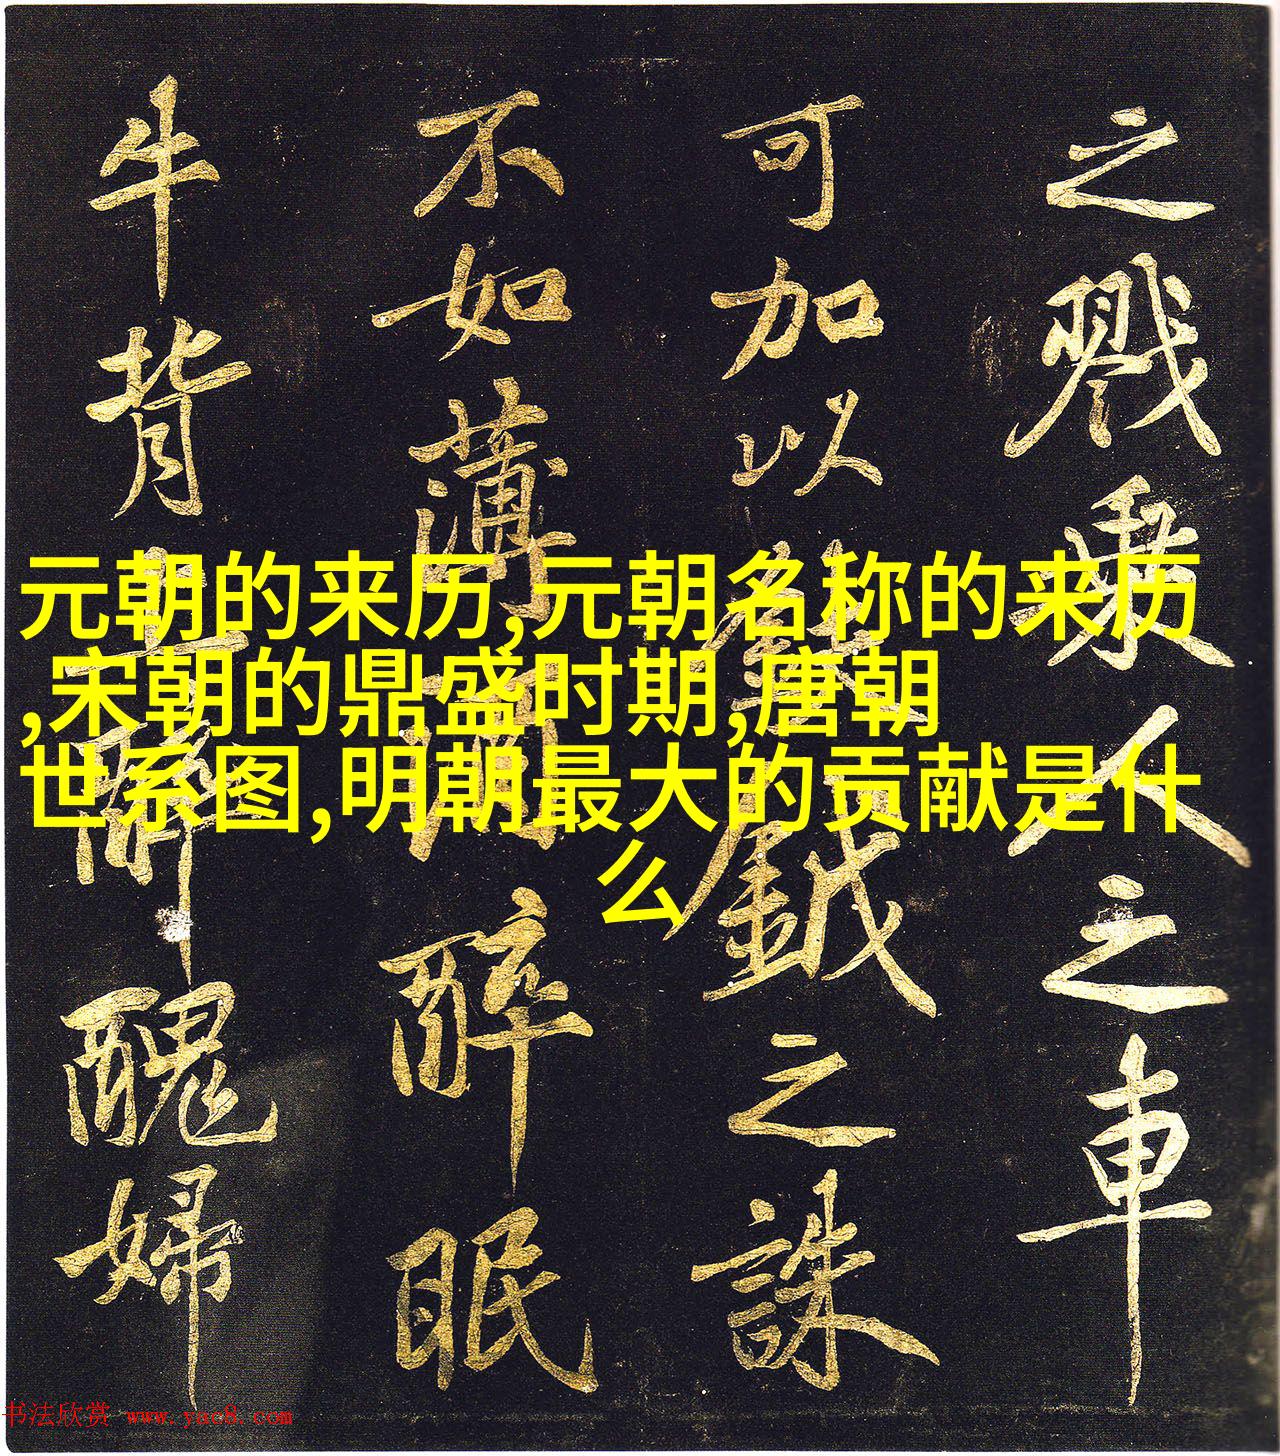 之戮乘人之車
可加以鉞之誅
不如薄醉眠
牛背上醜婦
元朝的来历,元朝名称的来历
,宋朝的鼎盛时期,唐朝
世系图,明朝最大的贡献是什
么
书法欣赏 www.yac8.com